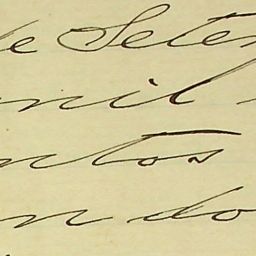 de Setem
mil
ntos
n do